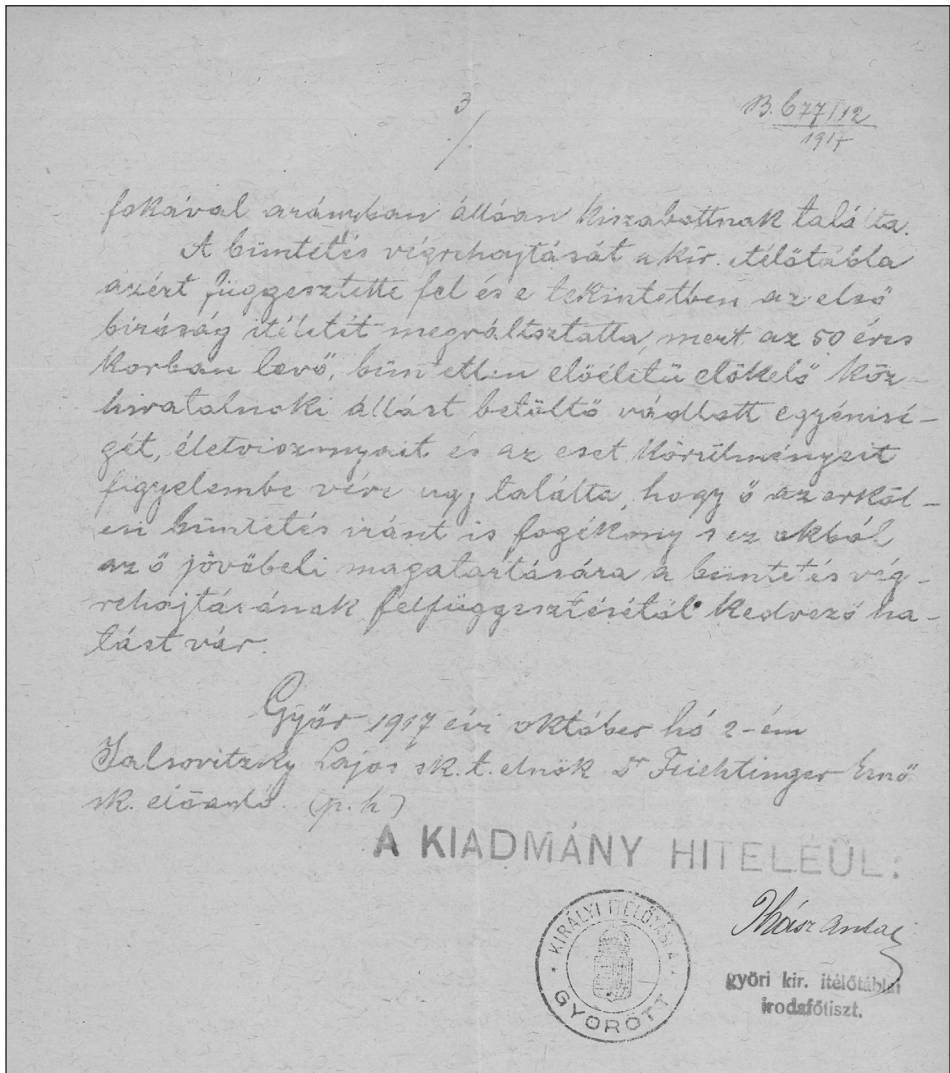 3
B. 677/12
1917
fokával arányban állóan kiszabottnak találta.
A büntetés végrehajtását a kir. itélőtábla
azért függesztette fel és e tekintetben az első
biróság itéletét megváltoztatta, mert az 50 éves
korban levő, büntetlen előéletü előkelő köz-
hivatalnoki állást betöltő vádlott egyénisé-
gét, életviszonyait és az eset körülményeit
figyelembe véve ugy találta, hogy ő az erköl-
csi büntetés iránt is fogékony s ez okból
az ő jövőbeli magatartására a büntetés vég-
rehajtásának felfüggesztésétől kedvező ha-
tást vár.
Győr 1917 évi október hó 2-én
Jalsovitzky Lajos sk. t. elnök Dr Feichtinger Ernő
sk. előadó. (p. h)
A KIADMÁNY HITELÉÜL:
KIRÁLYI ITÉLŐTÁBLA
GYŐRÖTT
győri kir. itélőtáblai
irodafőtiszt.